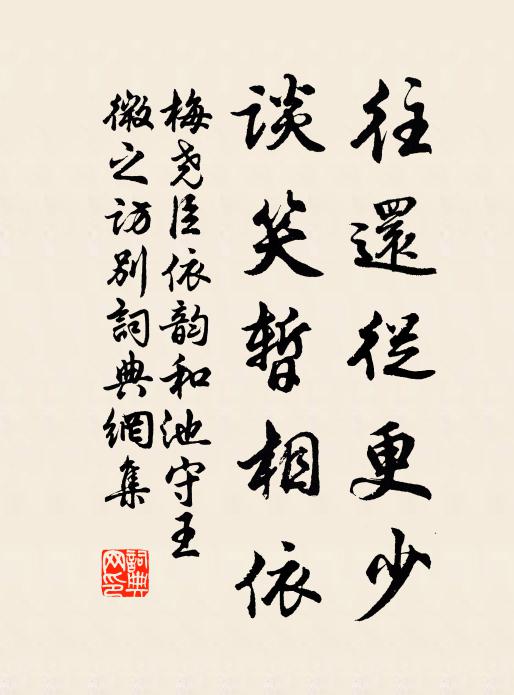 往還從更少
談笑暫相依
梅堯臣依韵和池守王
微之訪別詞典網集
詞典
网印